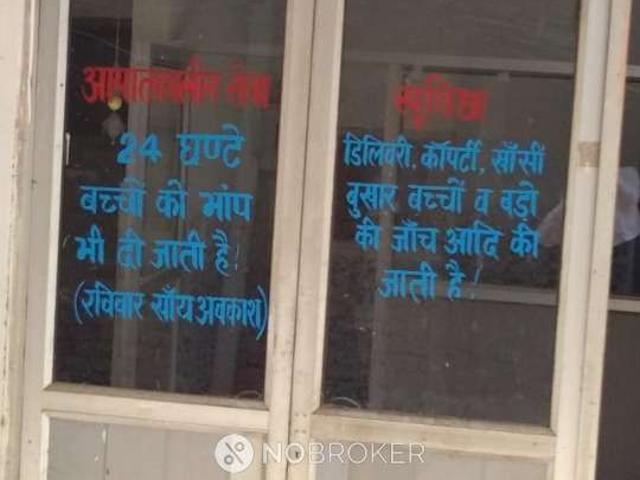 आपातकालीन सेवा
24 घण्टे
बच्चों को भांप
भी दी जाती है!
(रविवार साँय अवकाश)
सुविधा
डिलिवरी, कॉपर्टी, खाँसी
बुखार बच्चों व बड़ो
की जाँच आदि की
जाती है!
NOBROKER